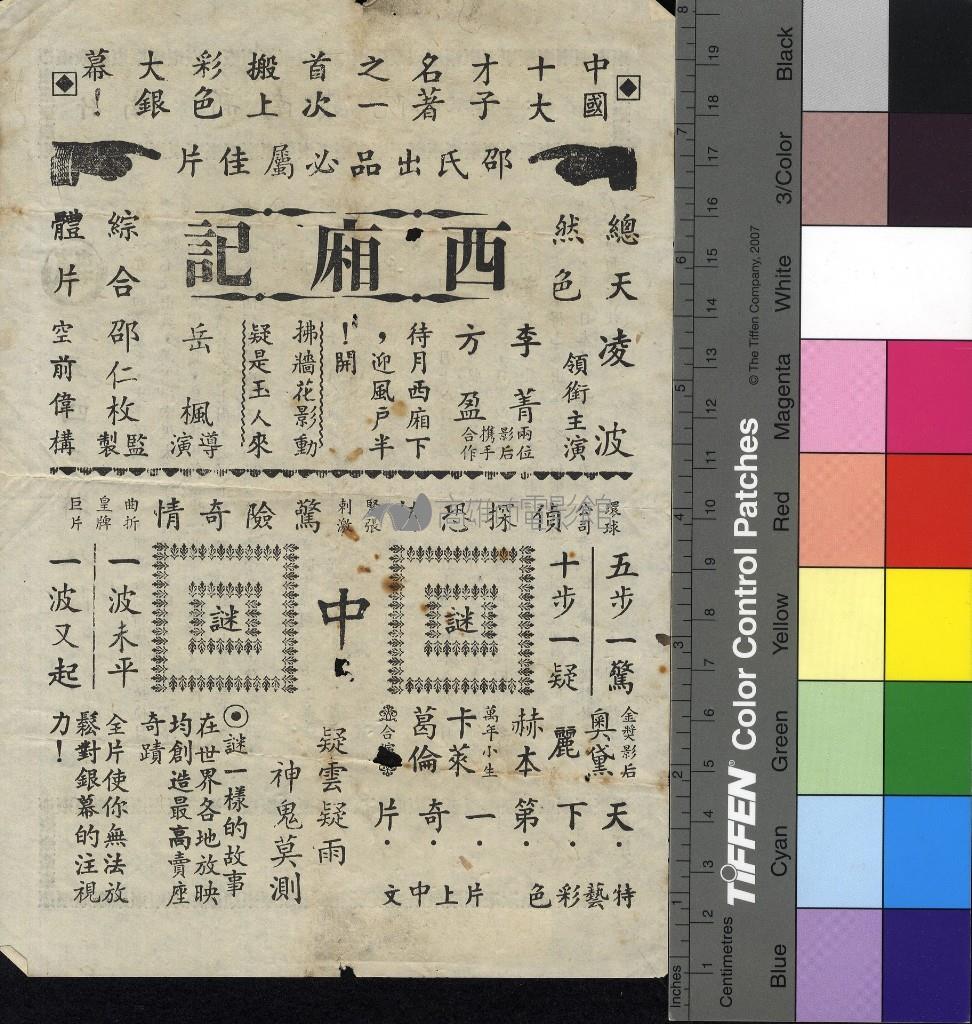 中國十大才子名著之一首次搬上彩色大銀幕！
邵氏出品必屬佳片
總天然色
西廂記
綜合體片
凌波
領銜主演
李菁
方盈
兩位影后携手合作
待月西廂下
，迎風戶半
！開
拂牆花影動
疑是玉人來
岳楓
導演
邵仁枚
監製
空前偉構
環球公司
偵探恐
緊張刺激
驚險奇情
曲折
皇牌
巨片
五步一驚
十步一疑
謎
中
謎
一波未平
一波又起
金獎影后
奧黛麗赫本
萬年小生
卡萊葛倫
合演
天下第一奇片
特藝彩色
片上中文
疑雲疑雨
神鬼莫測
謎一樣的故事
在世界各地放映
均創造最高賣座
奇蹟
全片使你無法放
鬆對銀幕的注視
力！
高雄市電影館
Inches
1 2 3 4 5 6 7 8
Centimetres
1 2 3 4 5 6 7 8 9 10 11 12 13 14 15 16 17 18 19
TIFFEN® Color Control Patches
© The Tiffen Company, 2007
Blue
Cyan
Green
Yellow
Red
Magenta
White
3/Color
Black